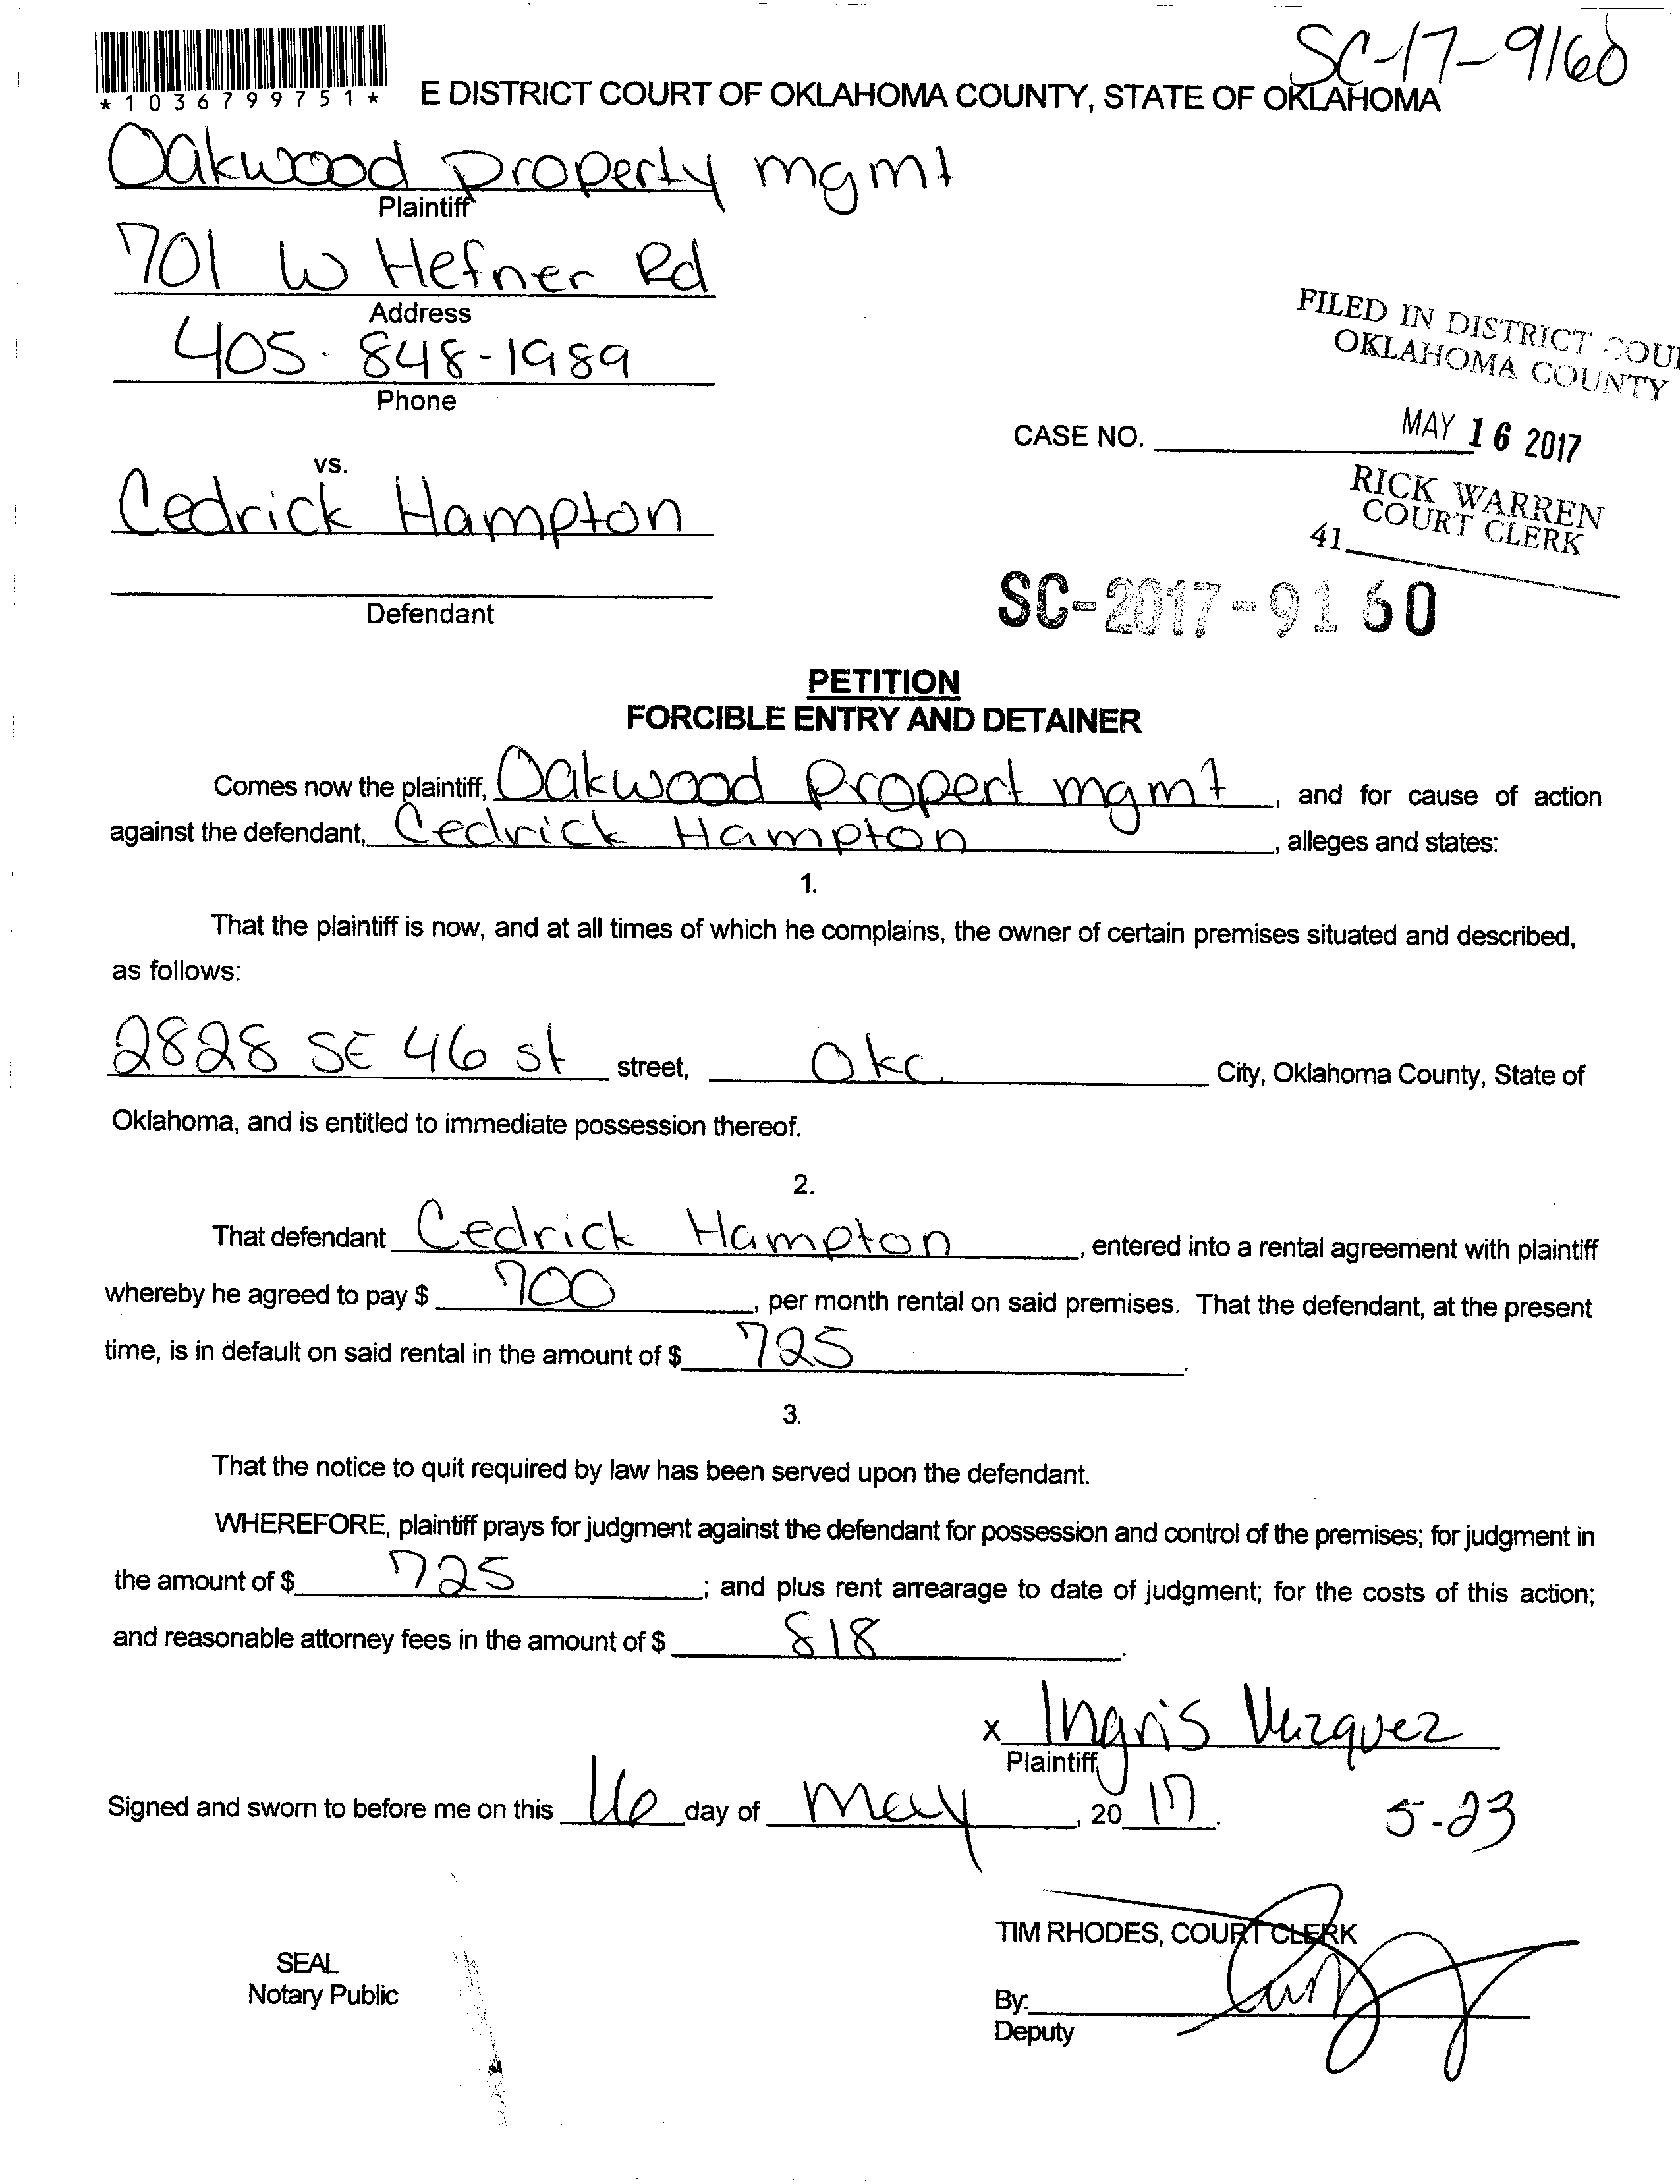 SC-17-9160
*1036799751*
E DISTRICT COURT OF OKLAHOMA COUNTY, STATE OF OKLAHOMA
Oakwood Property mgmt
Plaintiff
701 W Hefner Rd
Address
405-848-1989
Phone
FILED IN DISTRICT COU
OKLAHOMA COUNTY
CASE NO.
MAY 16 2017
RICK WARREN
COURT CLERK
41
vs.
Cedrick Hampton
Defendant
SC-2017-9160
PETITION
FORCIBLE ENTRY AND DETAINER
Comes now the plaintiff, Oakwood Propert mgmt, and for cause of action
against the defendant, Cedrick Hampton, alleges and states:
1.
That the plaintiff is now, and at all times of which he complains, the owner of certain premises situated and described,
as follows:
2828 SE 46 st street, Okc City, Oklahoma County, State of
Oklahoma, and is entitled to immediate possession thereof.
2.
That defendant Cedrick Hampton, entered into a rental agreement with plaintiff
whereby he agreed to pay $ 700, per month rental on said premises. That the defendant, at the present
time, is in default on said rental in the amount of $ 725.
3.
That the notice to quit required by law has been served upon the defendant.
WHEREFORE, plaintiff prays for judgment against the defendant for possession and control of the premises; for judgment in
the amount of $ 725; and plus rent arrearage to date of judgment; for the costs of this action;
and reasonable attorney fees in the amount of $ 818.
x Ingris Vazquez
Plaintiff
Signed and sworn to before me on this 16 day of May, 2017.
5-23
TIM RHODES, COURT CLERK
SEAL
Notary Public
By:
Deputy